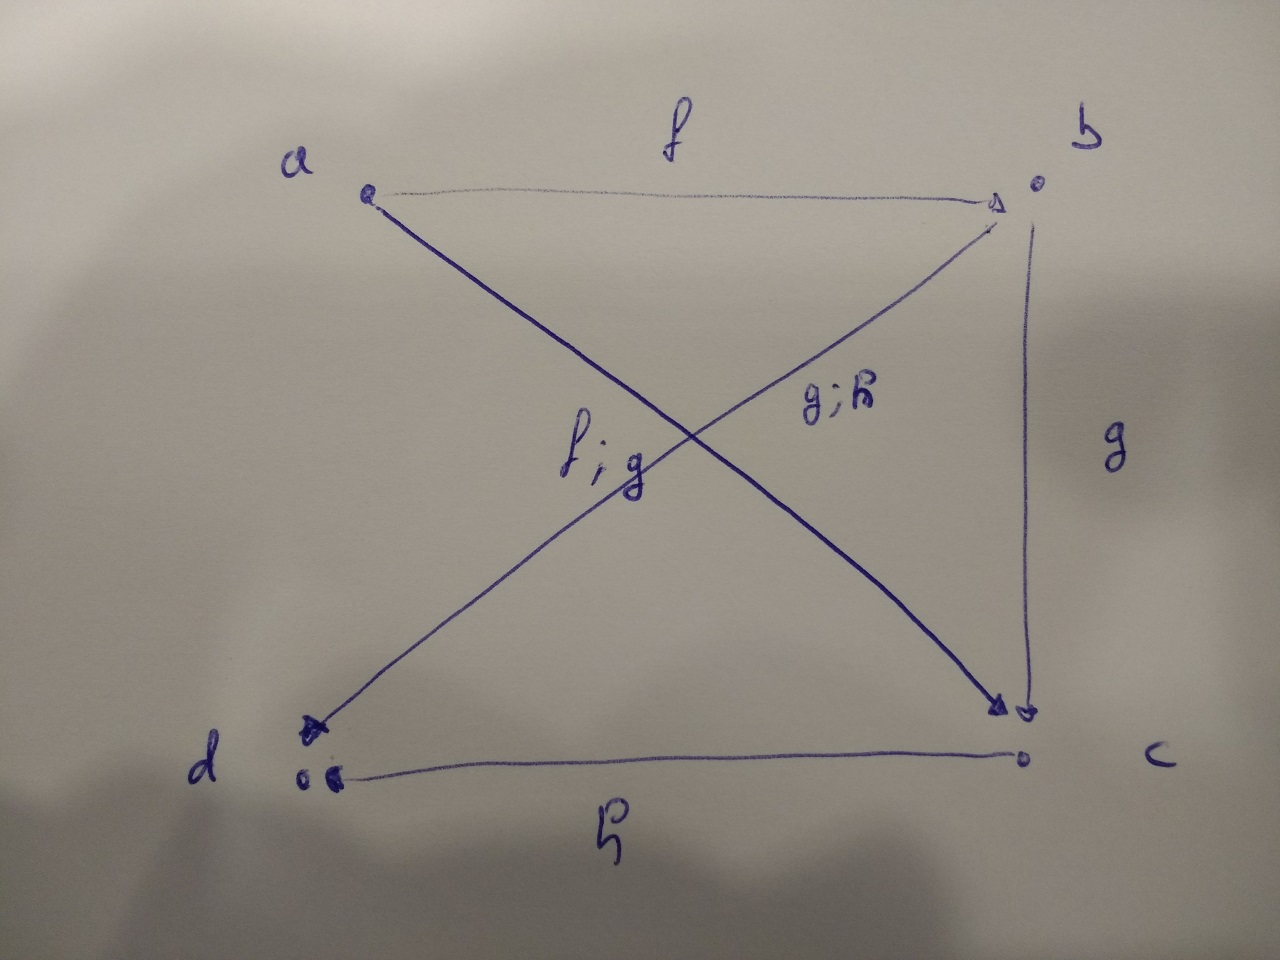 a f b
g;h
f;g g
d c
h